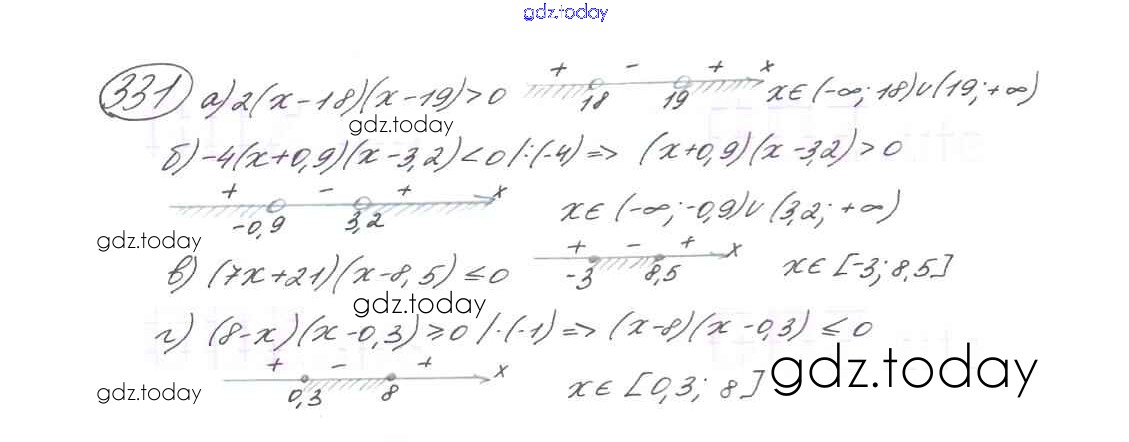 gdz.today
331 а) 2(x-18)(x-19)>0 + - + x 18 19 x∈(-∞;18)∪(19;+∞)
gdz.today
б) -4(x+0,9)(x-3,2)<0 /:(-4) => (x+0,9)(x-3,2)>0
+ - + x
-0,9 3,2 x∈(-∞;-0,9)∪(3,2;+∞)
gdz.today
в) (7x+21)(x-8,5)≤0 + - + x -3 8,5 x∈[-3;8,5]
gdz.today
г) (8-x)(x-0,3)≥0 /·(-1) => (x-8)(x-0,3)≤0
+ - + x
gdz.today 0,3 8 x∈[0,3; 8] gdz.today